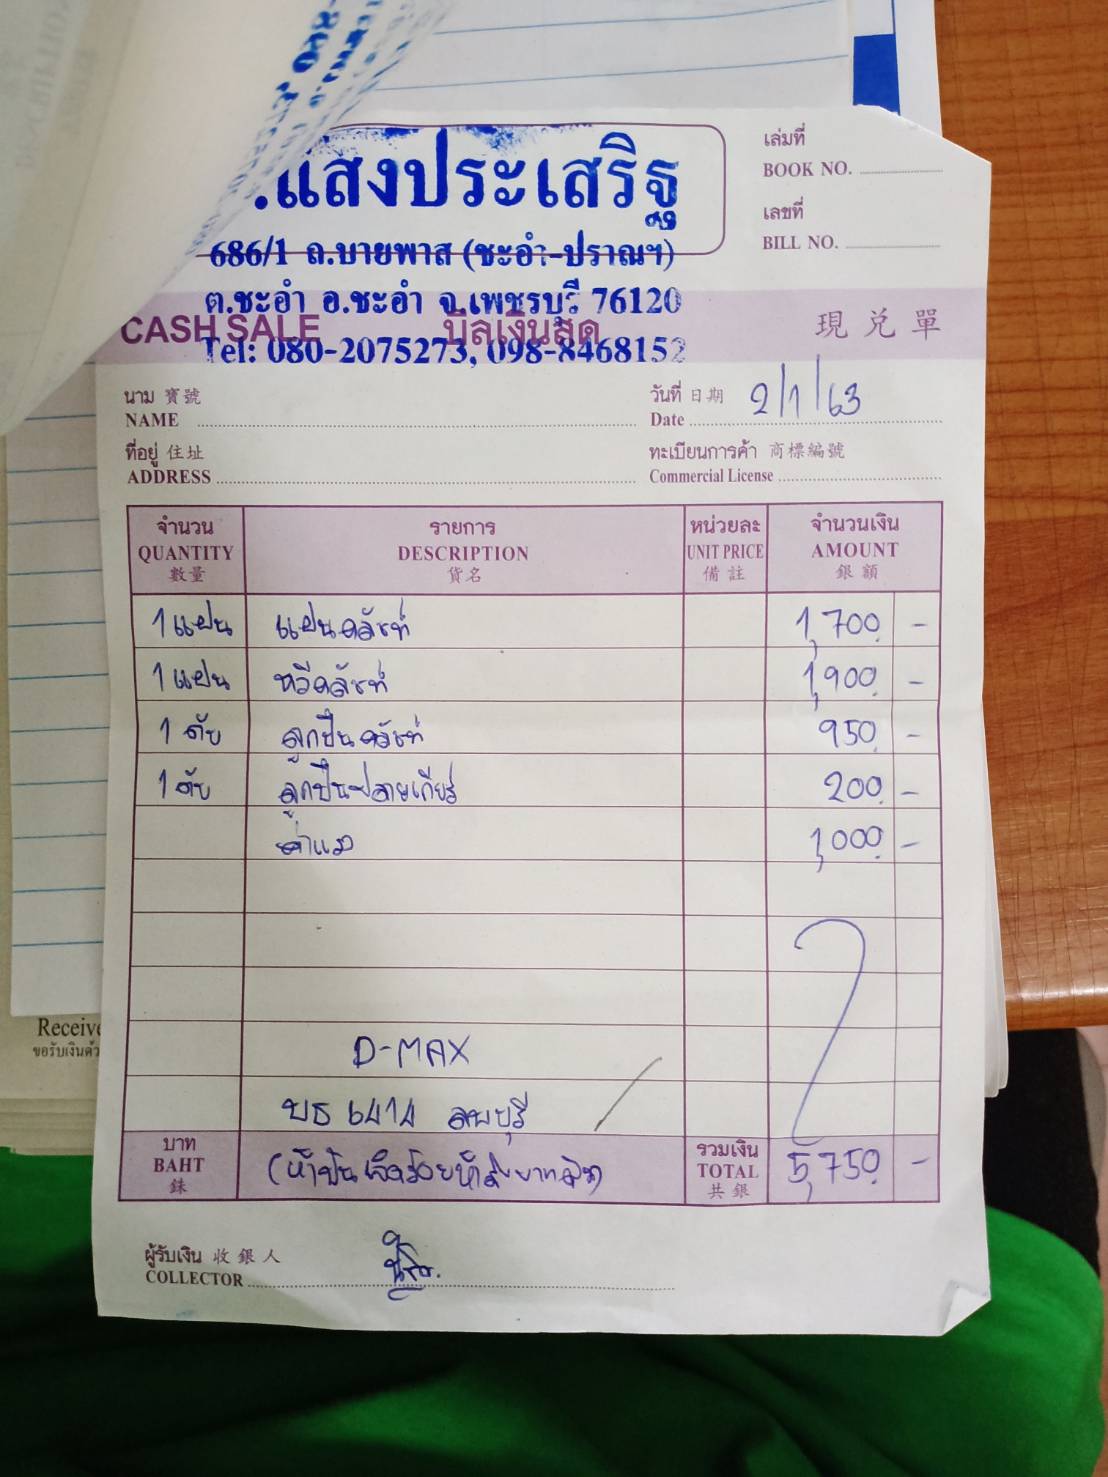 .แสงประเสริฐ
686/1 ถ.บายพาส (ชะอำ-ปราณฯ)
ต.ชะอำ อ.ชะอำ จ.เพชรบุรี 76120
Tel: 080-2075273, 098-8468152
เล่มที่
BOOK NO.
เลขที่
BILL NO.
CASH SALE บิลเงินสด 現兌單
นาม 寶號
NAME
วันที่ 日期 2/1/63
Date
ที่อยู่ 住址
ADDRESS
ทะเบียนการค้า 商標編號
Commercial License
จำนวน รายการ หน่วยละ จำนวนเงิน
QUANTITY DESCRIPTION UNIT PRICE AMOUNT
數量 貨名 備註 銀額
1 แผ่น แผ่นคลัทช์ 1,700 -
1 แผ่น หวีคลัทช์ 1,900 -
1 ตับ ลูกปืนคลัทช์ 950 -
1 ตับ ลูกปืนปลายเกียร์ 200 -
ค่าแรง 1,000 -
D-MAX
บธ 6414 ลพบุรี
บาท
BAHT
銖
(ห้าพันเจ็ดร้อยห้าสิบบาทถ้วน)
รวมเงิน
TOTAL 5,750 -
共銀
ผู้รับเงิน 收銀人
COLLECTOR
Receive
ขอรับเงินด้ว